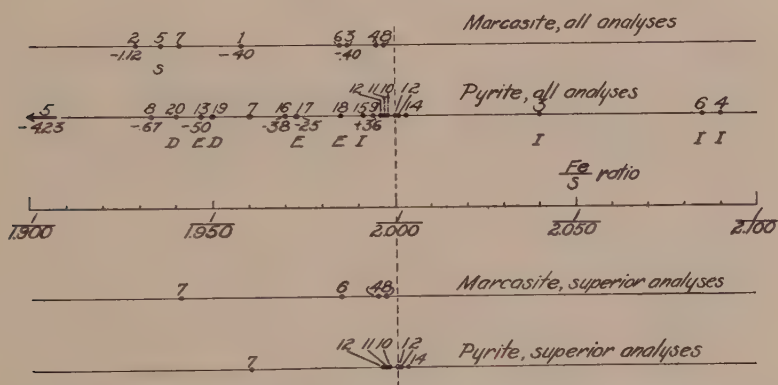 Marcasite, all analyses
2 5 7 1 6 3 4 8
-1.12 -.40 -.40
S
Pyrite, all analyses
12 11 10 1 2
5 8 20 13 19 7 16 17 18 15 9 14 3 6 4
-4.23 -.67 -.50 -.38 -.25 +.36
D E D E E I I I I
Fe/S ratio
1.900 1.950 2.000 2.050 2.100
Marcasite, superior analyses
7 6 4 8
Pyrite, superior analyses
12 11 10 1 2
7 14